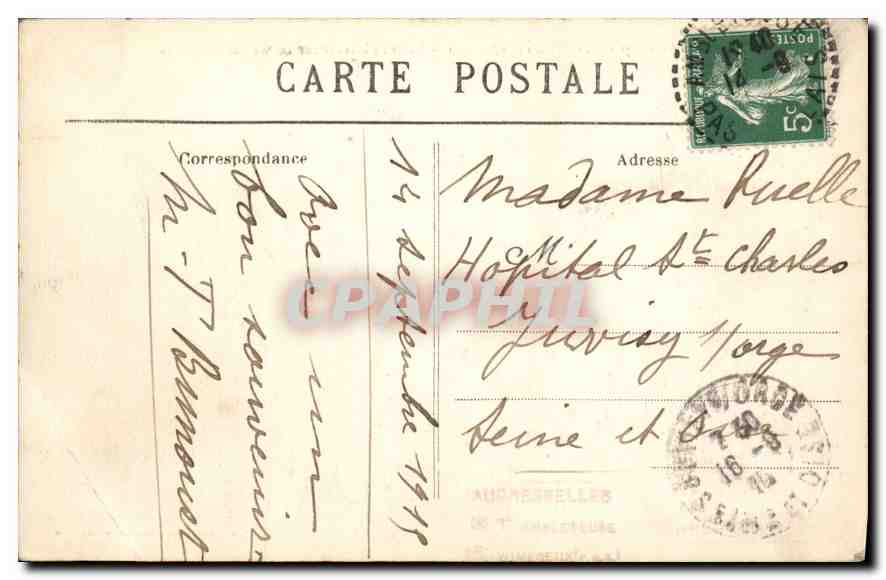 CARTE POSTALE
Correspondance
Adresse
14 septembre 1915
Avec un
bon souvenir
M-T
Madame Ruelle
Hôpital St Charles
Juvisy s/orge
Seine et Oise
REPUBLIQUE FRANÇAISE
POSTES
5c
PAS
CALAIS
10 40
14 -9
7 40
16 -9
15
SEINE ET OISE
AUDRESSELLES
AMBLETEUSE
CPAPHIL